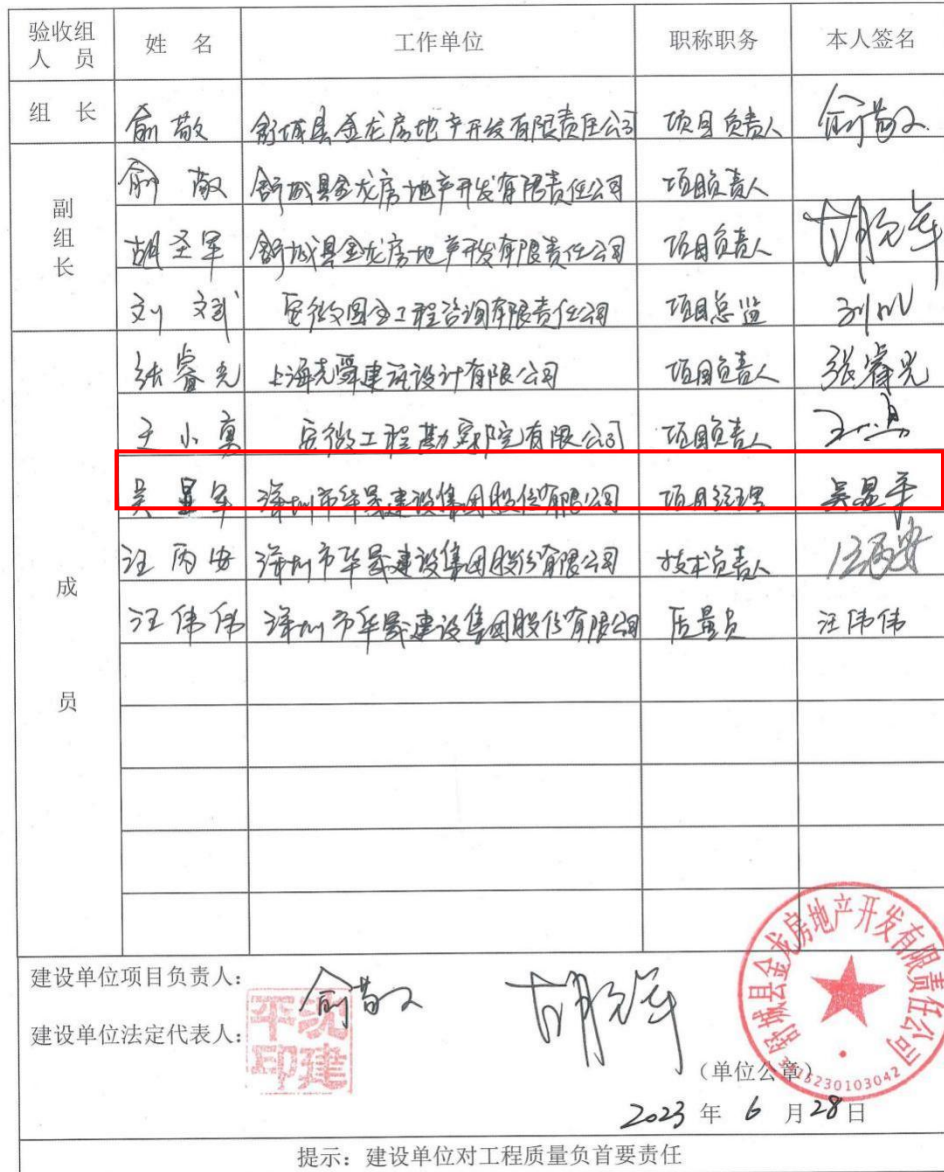 验收组人 员 姓 名 工作单位 职称职务 本人签名
组 长 俞敬 舒城县金龙房地产开发有限责任公司 项目负责人 俞敬
副组长 俞敬 舒城县金龙房地产开发有限责任公司 项目负责人
胡圣军 舒城县金龙房地产开发有限责任公司 项目负责人 胡圣军
刘斌 工程咨询有限责任公司 项目总监 刘斌
成员 张睿光 上海尧舜建筑设计有限公司 项目负责人 张睿光
王小勇 安徽工程勘察院有限公司 项目负责人
吴显军 漳州市华晟建设集团股份有限公司 项目经理
汪丙安 漳州市华晟建设集团股份有限公司 技术负责人 汪丙安
汪伟伟 漳州市华晟建设集团股份有限公司 质量员 汪伟伟
建设单位项目负责人： 俞敬 胡圣军
建设单位法定代表人：
平沈印建
舒城县金龙房地产开发有限责任公司
（单位公章）
2023 年 6 月 28 日
提示：建设单位对工程质量负首要责任